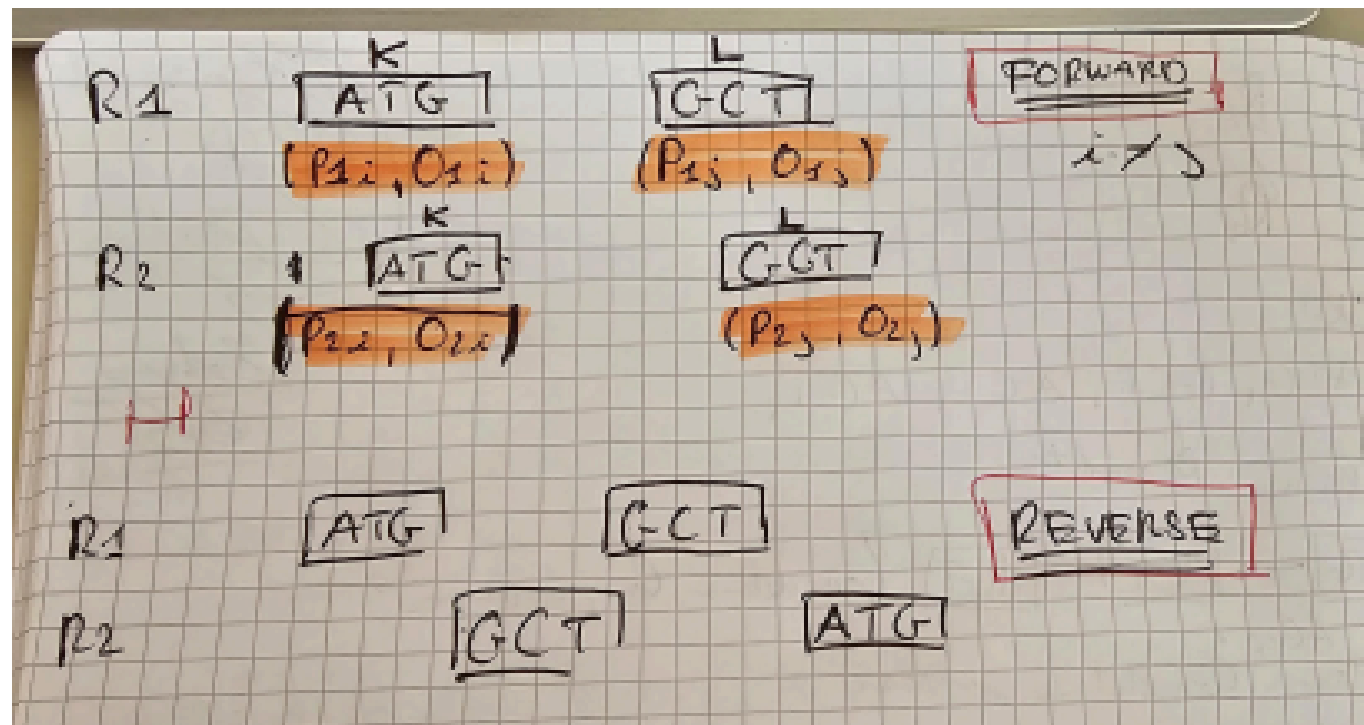 K L
R1 ATG GCT FORWARD
(P1i, O1i) (P1j, O1j) i≠j
K L
R2 ATG GCT
(P2i, O2i) (P2j, O2j)
R1 ATG GCT REVERSE
R2 GCT ATG